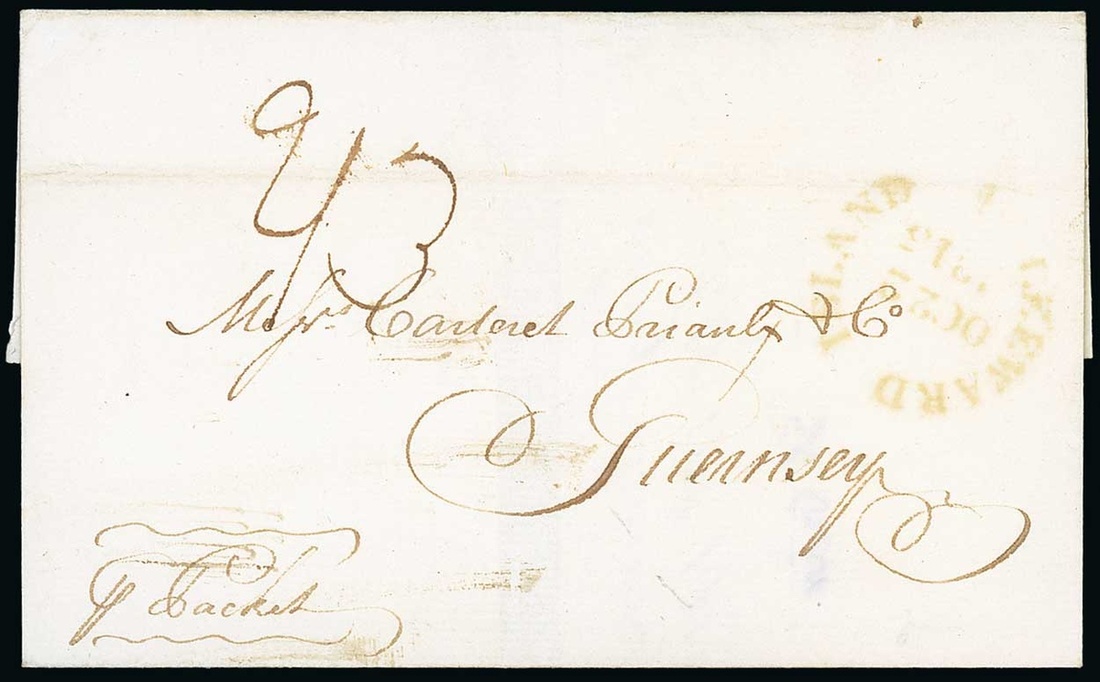 2/3
Messrs. Carteret Priaulx & Co
Guernsey
p Packet
LEEWARD ISLAND
OC